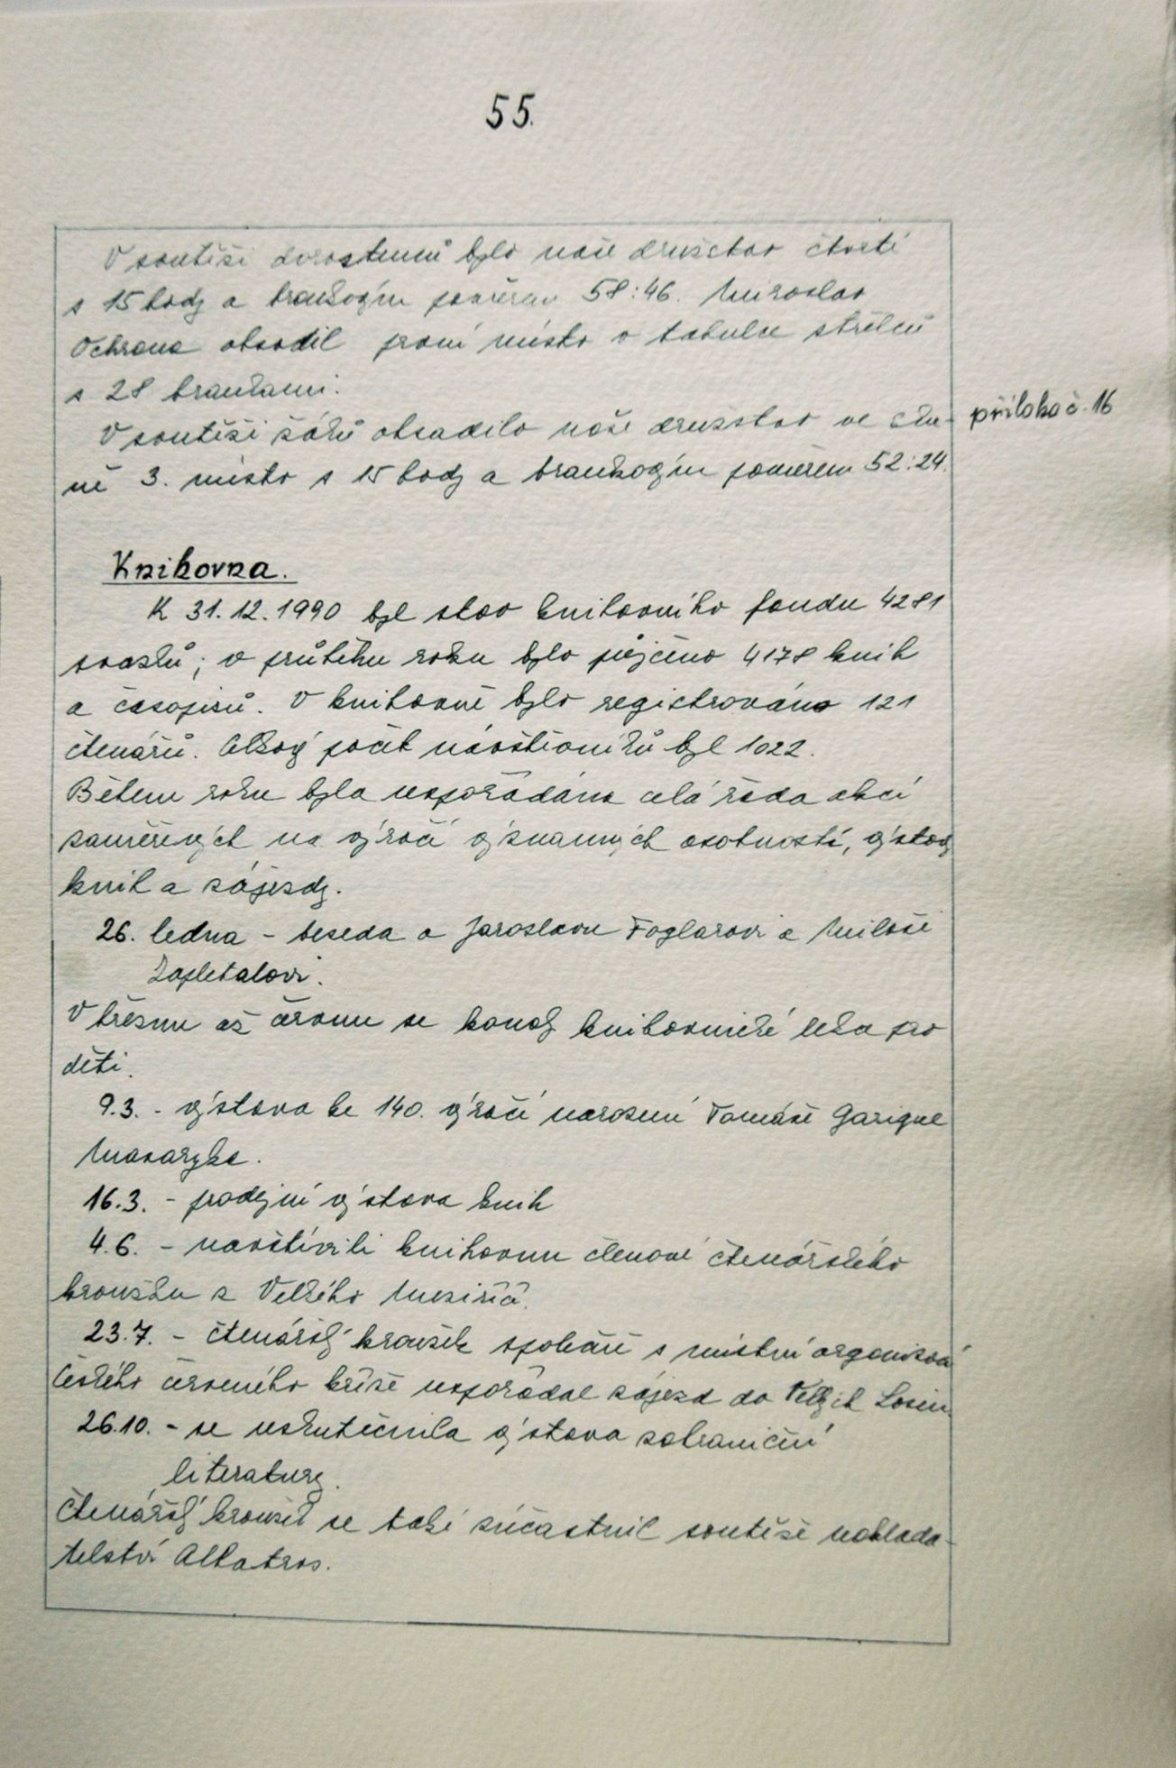 55.
V soutěži dorostenců bylo naše družstvo čtvrté
s 15 body a brankovým poměrem 58:46. Miroslav
Ochrana obsadil první místo v tabulce střelců
s 28 brankami.
V soutěži žáků obsadilo naše družstvo ve sku-
příloha č. 16
ně 3. místo s 15 body a brankovým poměrem 52:24.
Knihovna.
K 31.12.1990 byl stav knihovního fondu 4281
svazků; v průběhu roku bylo půjčeno 4178 knih
a časopisů. V knihovně bylo registrováno 121
čtenářů. Celkový počet návštěvníků byl 1022.
Během roku byla uspořádána celá řada akcí
zaměřených na výročí významných osobností, výstavy
knih a zájezdy.
26. ledna - beseda o Jaroslavu Foglarovi a Miloši
Zapletalovi.
V březnu až červnu se konaly knihovnické lekce pro
děti.
9.3. - výstava ke 140. výročí narození Tomáše Garigue
Masaryka.
16.3. - prodejní výstava knih
4.6. - navštívili knihovnu členové čtenářského
kroužku z Velkého Meziříčí.
23.7. - čtenářský kroužek společně s místní organizací
Českého červeného kříže uspořádal zájezd do Velkých Losin
26.10. - se uskutečnila výstava zahraniční
literatury.
Čtenářský kroužek se také zúčastnil soutěže naklada-
telství Albatros.